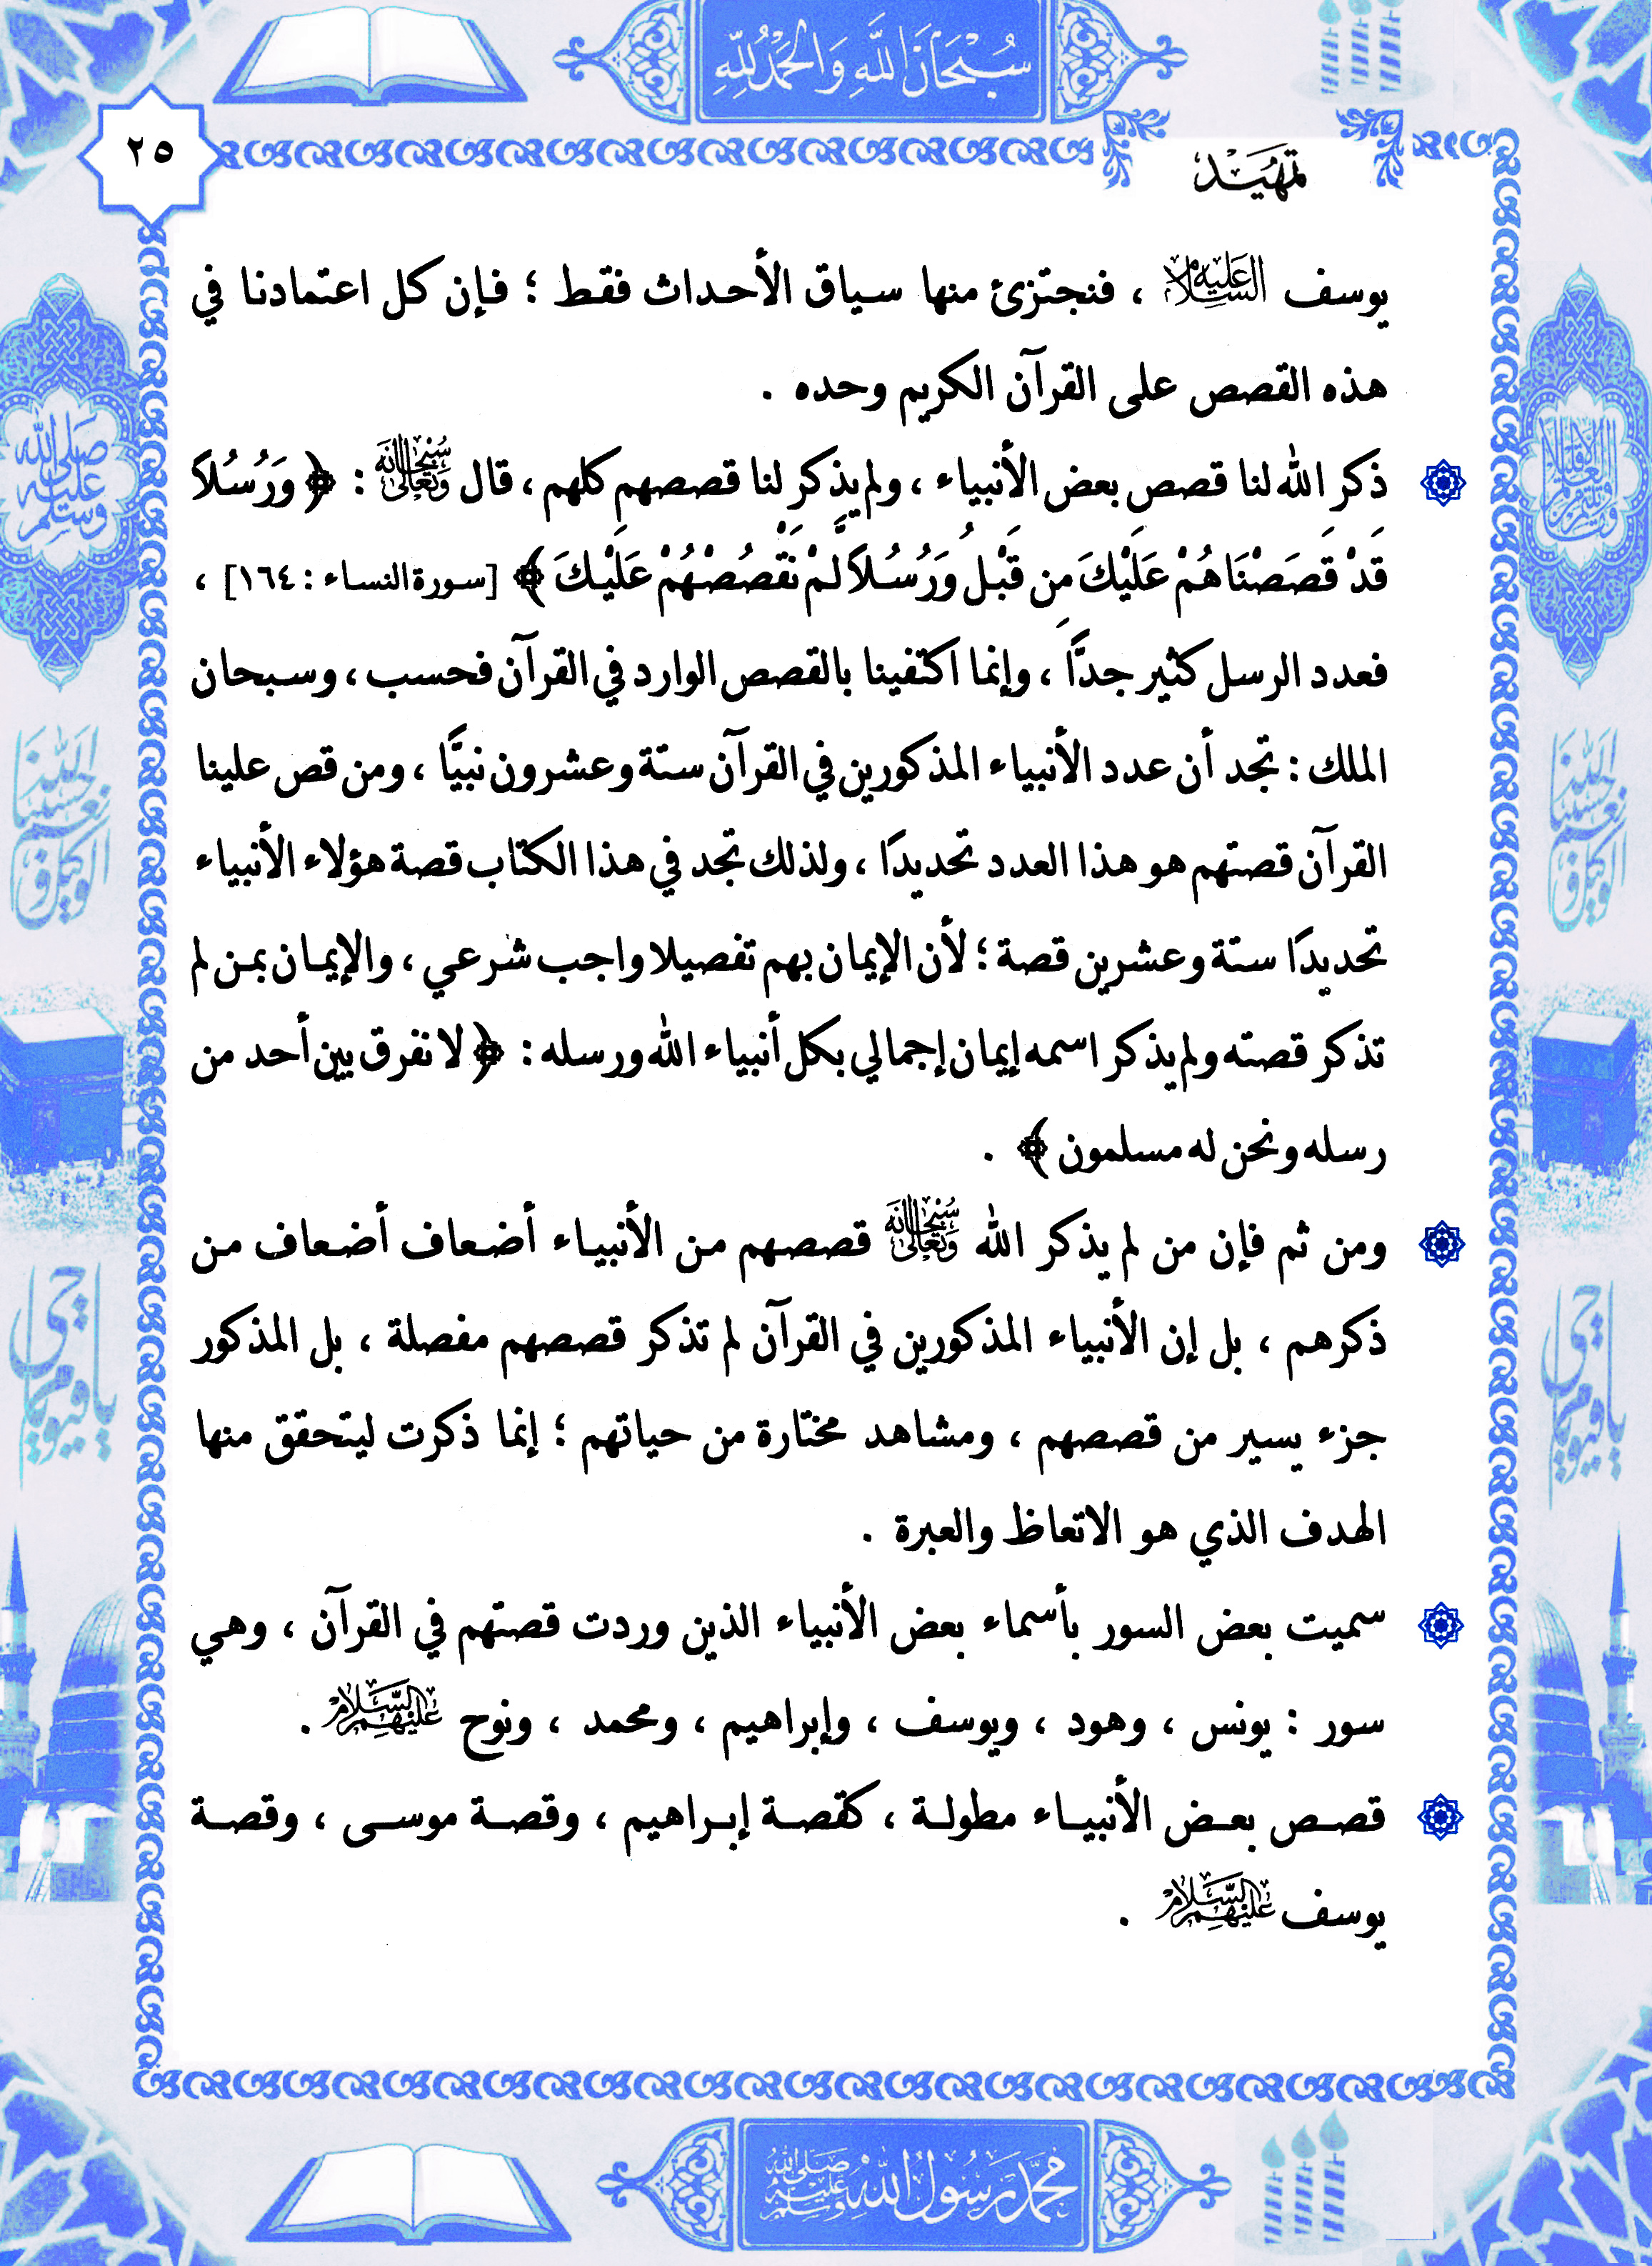 سُبْحَانَ اللَّهِ وَالْحَمْدُ لِلَّهِ
٢٥
تمهيد
يوسف عليه السلام ، فنجتزئ منها سياق الأحداث فقط ؛ فإن كل اعتمادنا في
هذه القصص على القرآن الكريم وحده .
ذكر الله لنا قصص بعض الأنبياء ، ولم يذكر لنا قصصهم كلهم ، قال سبحانه وتعالى : ﴿ وَرُسُلاً
قَدْ قَصَصْنَاهُمْ عَلَيْكَ مِن قَبْلُ وَرُسُلاً لَّمْ نَقْصُصْهُمْ عَلَيْكَ ﴾ [سورة النساء : ١٦٤] ،
فعدد الرسل كثير جدًّا ، وإنما اكتفينا بالقصص الوارد في القرآن فحسب ، وسبحان
الملك : تجد أن عدد الأنبياء المذكورين في القرآن ستة وعشرون نبيًّا ، ومن قص علينا
القرآن قصتهم هو هذا العدد تحديدًا ، ولذلك تجد في هذا الكتاب قصة هؤلاء الأنبياء
تحديدًا ستة وعشرين قصة ؛ لأن الإيمان بهم تفصيلا واجب شرعي ، والإيمان بمن لم
تذكر قصته ولم يذكر اسمه إيمان إجمالي بكل أنبياء الله ورسله : ﴿ لا نفرق بين أحد من
رسله ونحن له مسلمون ﴾ .
ومن ثم فإن من لم يذكر الله سبحانه وتعالى قصصهم من الأنبياء أضعاف أضعاف من
ذكرهم ، بل إن الأنبياء المذكورين في القرآن لم تذكر قصصهم مفصلة ، بل المذكور
جزء يسير من قصصهم ، ومشاهد مختارة من حياتهم ؛ إنما ذكرت ليتحقق منها
الهدف الذي هو الاتعاظ والعبرة .
سميت بعض السور بأسماء بعض الأنبياء الذين وردت قصتهم في القرآن ، وهي
سور : يونس ، وهود ، ويوسف ، وإبراهيم ، ومحمد ، ونوح عليهم السلام .
قصص بعض الأنبياء مطولة ، كقصة إبراهيم ، وقصة موسى ، وقصة
يوسف عليهم السلام .
صلى الله عليه وسلم
حسبنا الله ونعم الوكيل
حسبنا الله ونعم الوكيل
يا حي يا قيوم
يا حي يا قيوم
محمد رسول الله صلى الله عليه وسلم